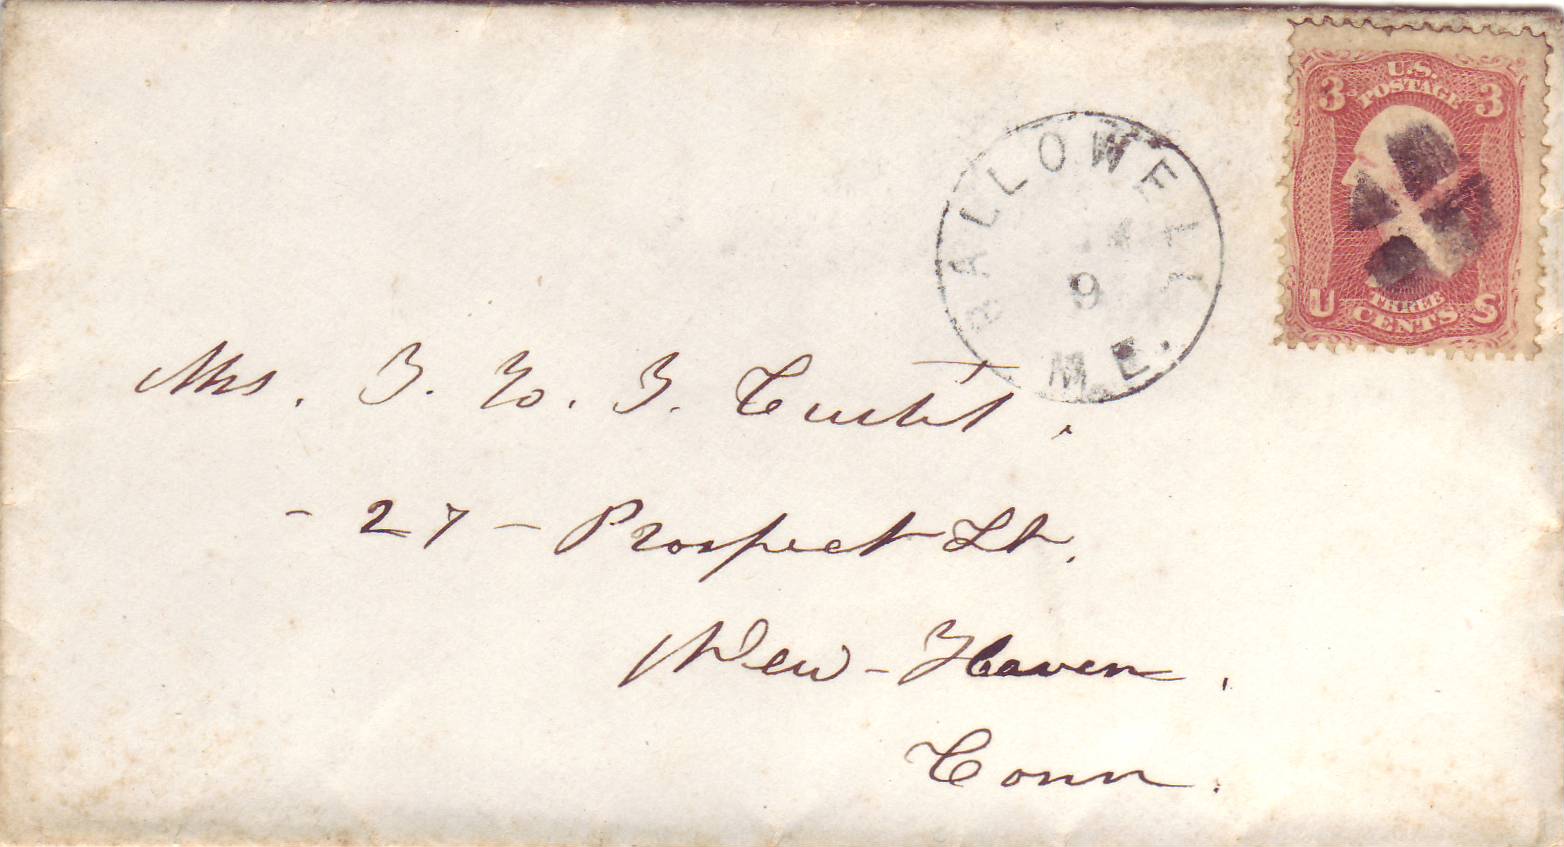 U.S.
3 POSTAGE 3
U THREE S
CENTS
HALLOWELL
9
ME.
Mrs. T. W. T. Curtis,
- 27 - Prospect St.
New-Haven,
Conn.